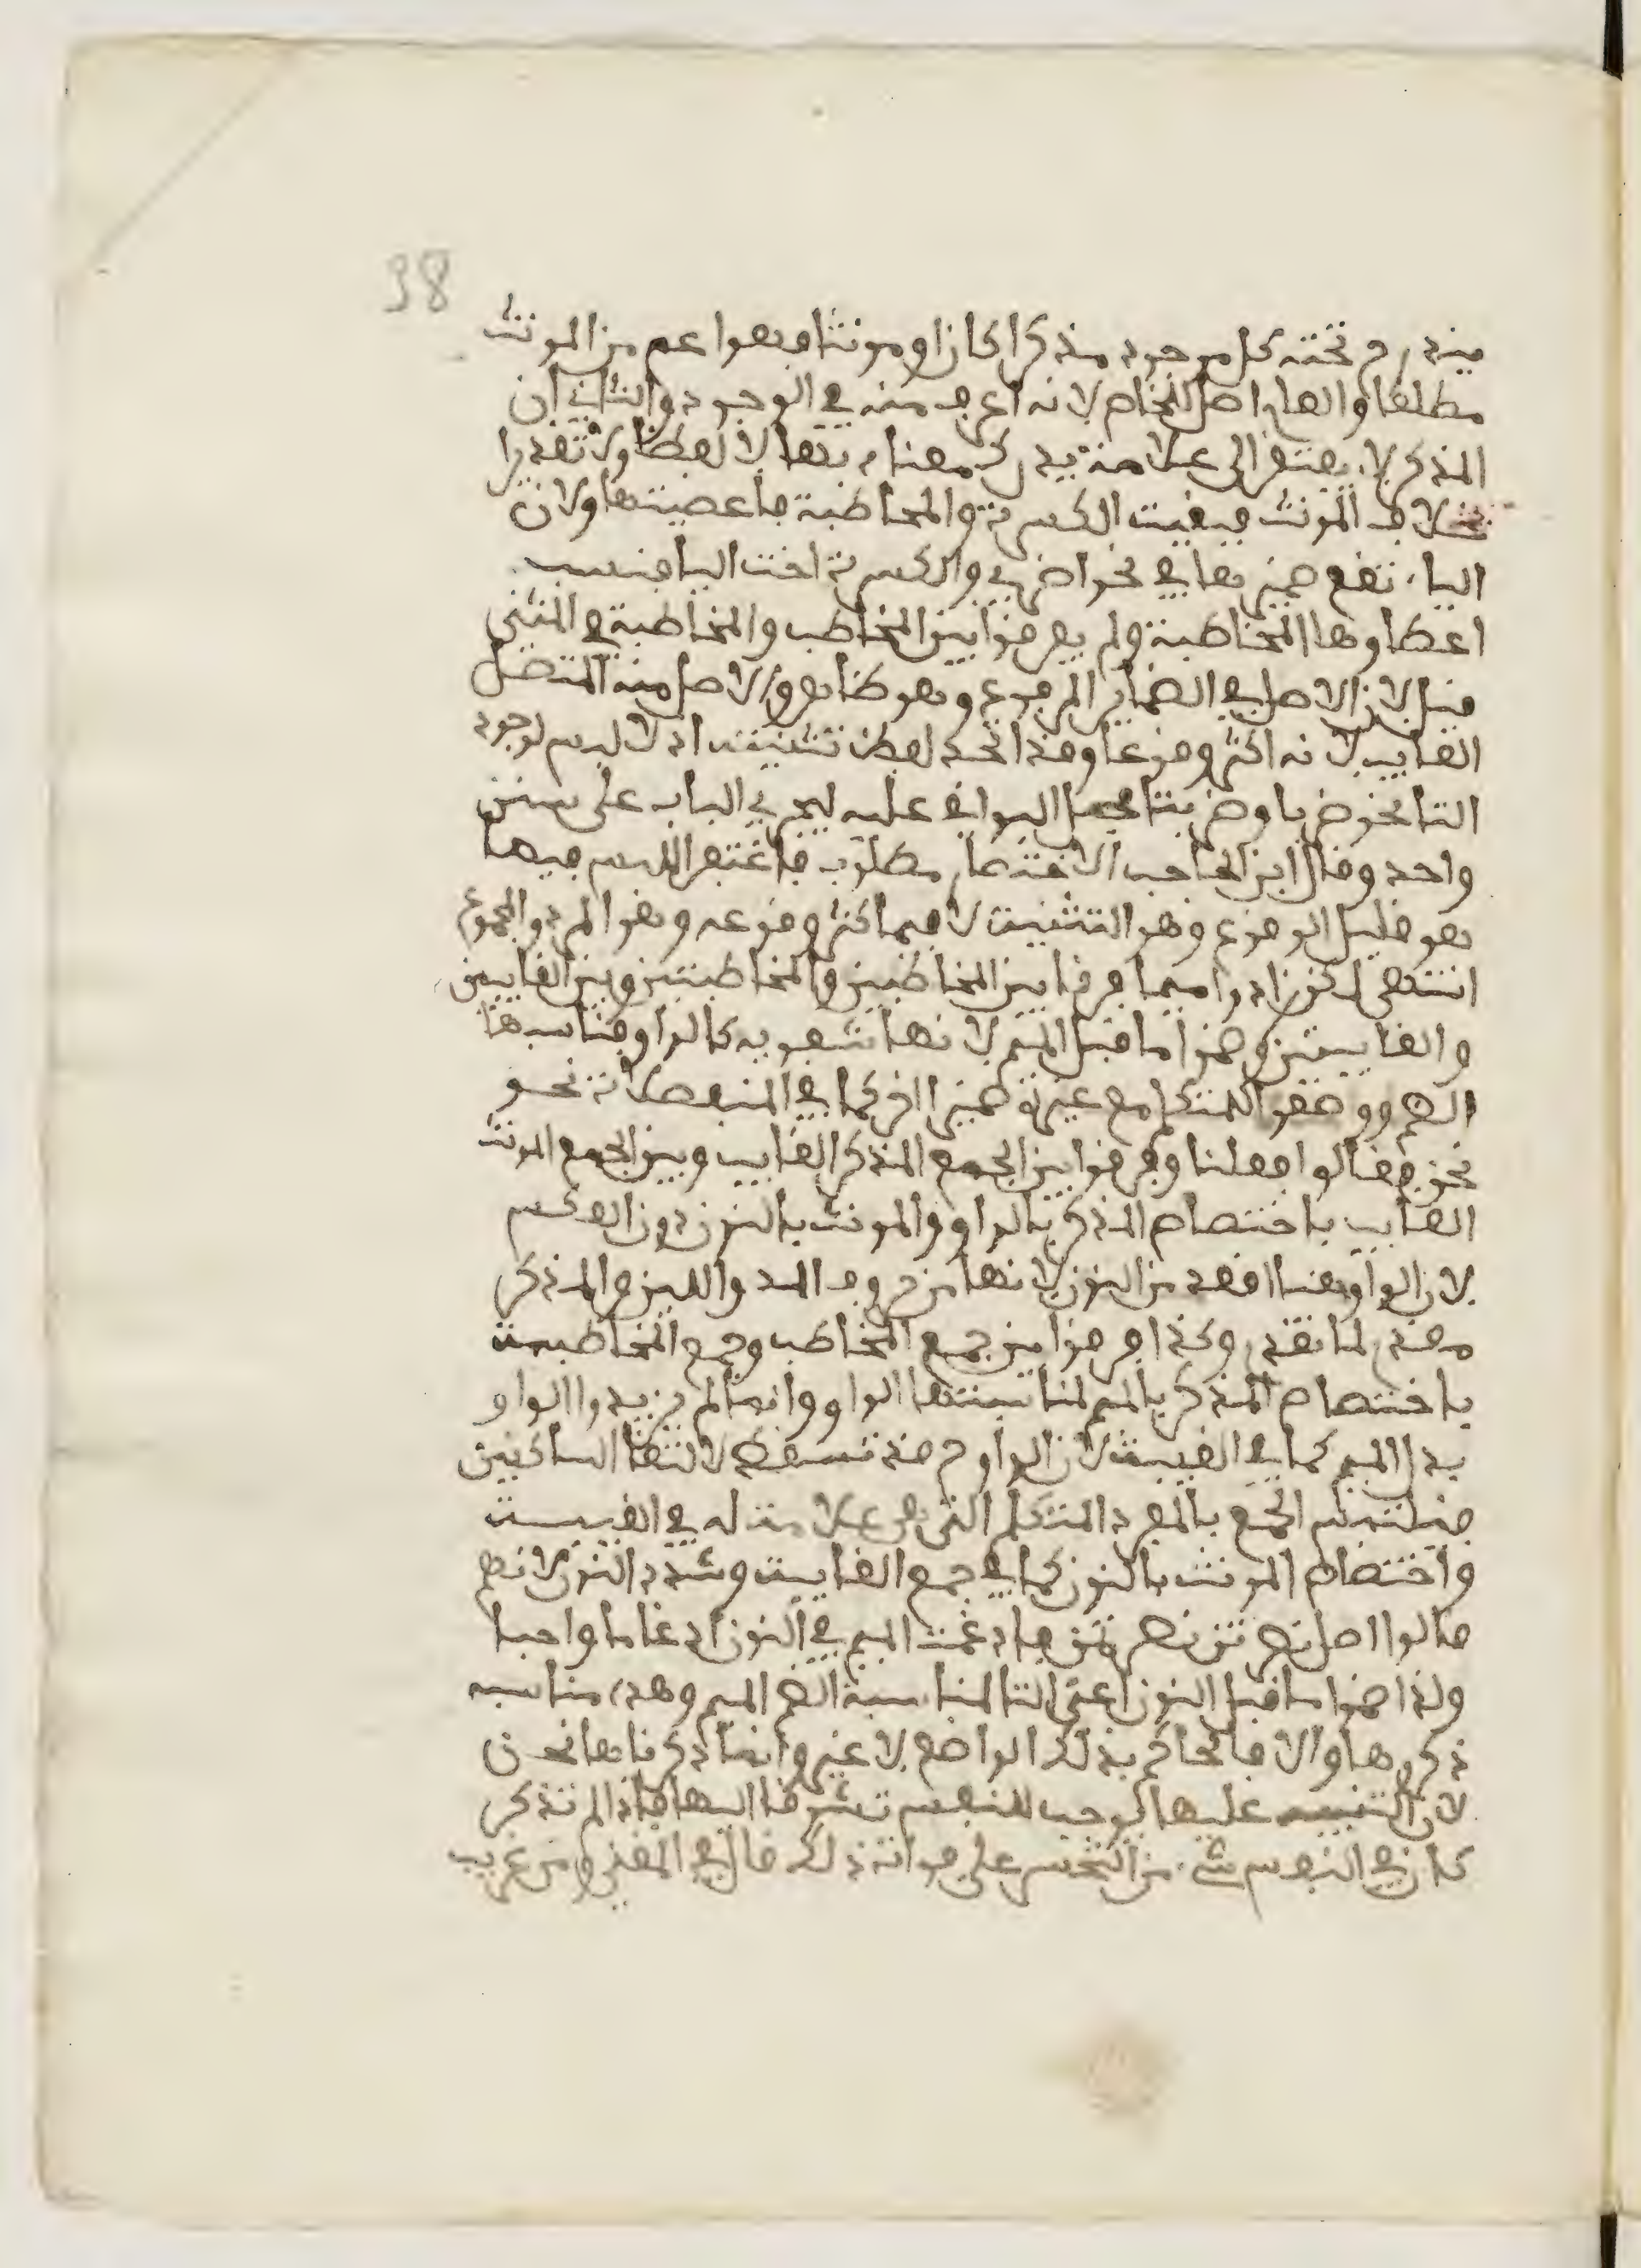 38
فيندرج تحته كل موجود مذكرا كان او مونثا فهو اعم من المونث
مطلقا والعام اصل للخاص لانه اعرف منه في الوجود والثاني ان
المذكر لا يفتقر الى علامة تدل على معناه بها لا لفظا ولا تقديرا
بخلاف المونث فبقيت الكسرة والمخاطبة فاعطيتها ولان
الياء تقع ضميرها في نحو اضربي والكسرة اخت اليا فناسب
اعطاوها المخاطبة ولم يفرقوا بين المخاطب والمخاطبة في المثنى
قيل لان الاصل في الضماير المرفوع وهو ظاهر والاصل منه المتصل
الغايب لانه اكثر وقوعا وقد اتحد لفظ تثنيته اذ لا لبس لوجود
التا نحو ضربا وضربتا فحمل البواقي عليه ليجري الباب على سنن
واحد وقال ابن الحاجب الاختصار مطلوب فاغتفر اللبس فيما
هو قليل الوقوع وهو التثنية لا فيما كثر وقوعه وهو المفرد والمجموع
انتهى لكن زادوا ميما فرقا بين المخاطبين والمخاطبتين وبين الغايبين
والغايبتين وضموا ما قبل الميم لانها شفوية كالواو فناسبها
الضم ووضعوا للمتكلم مع غيره ضميرا اخر كما في المنفصلات نحو
نحن فقالوا فعلنا وفرقوا بين الجمع المذكر الغايب وبين الجمع المونث
الغايب باختصاص المذكر بالواو والمونث بالنون دون العكس
لان الواو هنا اقعد من النون لانها من حروف المد واللين والمذكر
مقدم لما تقدم وكذا فرقوا بين جمع المخاطب وجمع المخاطبة
باختصاص المذكر بالميم لمناسبتها الواو وانما لم يزيدوا الواو
بدل الميم كما في الغيبة لان الواو قد تسقط لالتقا الساكنين
فيلتبس الجمع بالمفرد المتكلم التي هي علامة له في الغيبة
واختصاص المونث بالنون كما في جمع الغايبة وشدد النون لانهم
قالوا اصل ضربتن ضربتمن فادغمت الميم في النون ادغاما واجبا
ولذا ضموا ما قبل النون اعني التا لمناسبة الضم الميم وهذه مناسبه
ذكرها والا فالحاكم بذلك الواضع لا غير وانما ذكرناها نحن
لان التنبيه عليها يوجب للنفس تشوفا اليها فاذا لم تذكر
كان في النفس شيء من التحسر على فواته ذلك قال في المغني ومن غريب